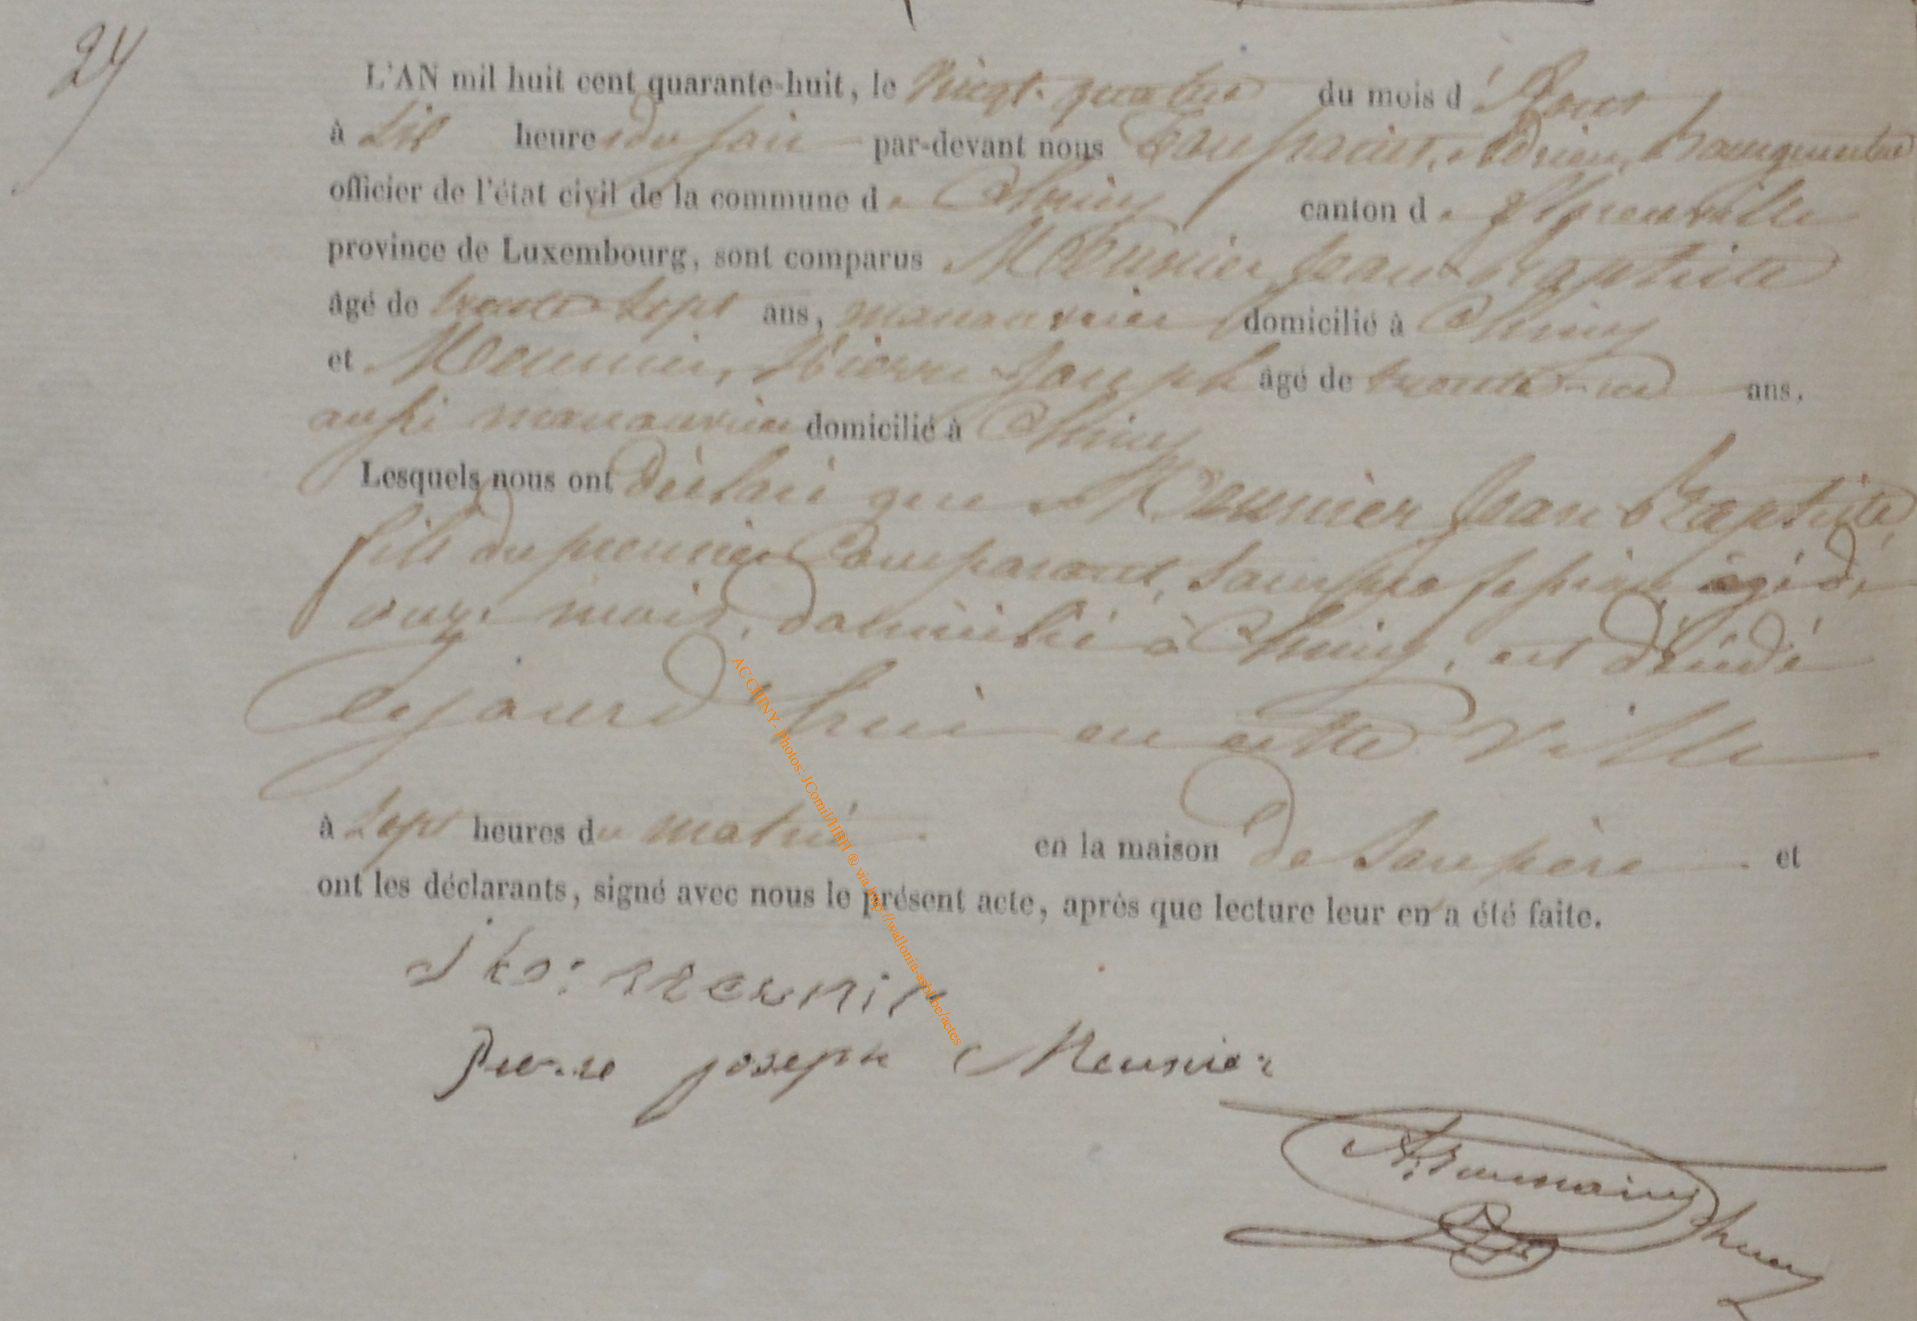 24
L'AN mil huit cent quarante-huit, le vingt-quatre du mois d'Aout
à six heures du soir par-devant nous Adrien, Bourguemtre
officier de l'état civil de la commune de Chiny canton de Florenville
province de Luxembourg, sont comparus Meunier Jean-Baptiste
âgé de trente-sept ans, manœuvrier domicilié à Chiny
et Meunier, Pierre Joseph âgé de trente-un ans,
aussi manœuvrier domicilié à Chiny
Lesquels nous ont déclaré que Meunier Jean Baptiste,
fils du premier Comparant, sans profession, âgé de
onze mois, domicilié à Chiny, est décédé
Aujourd'hui en cette Ville
à Sept heures du matin en la maison de Son père et
ont les déclarants, signé avec nous le présent acte, après que lecture leur en a été faite.
Meunie
Pierre joseph Meunier
AC CHINY- Photos: JComil/HBH ® via http://wallonia-asbl.be/actes